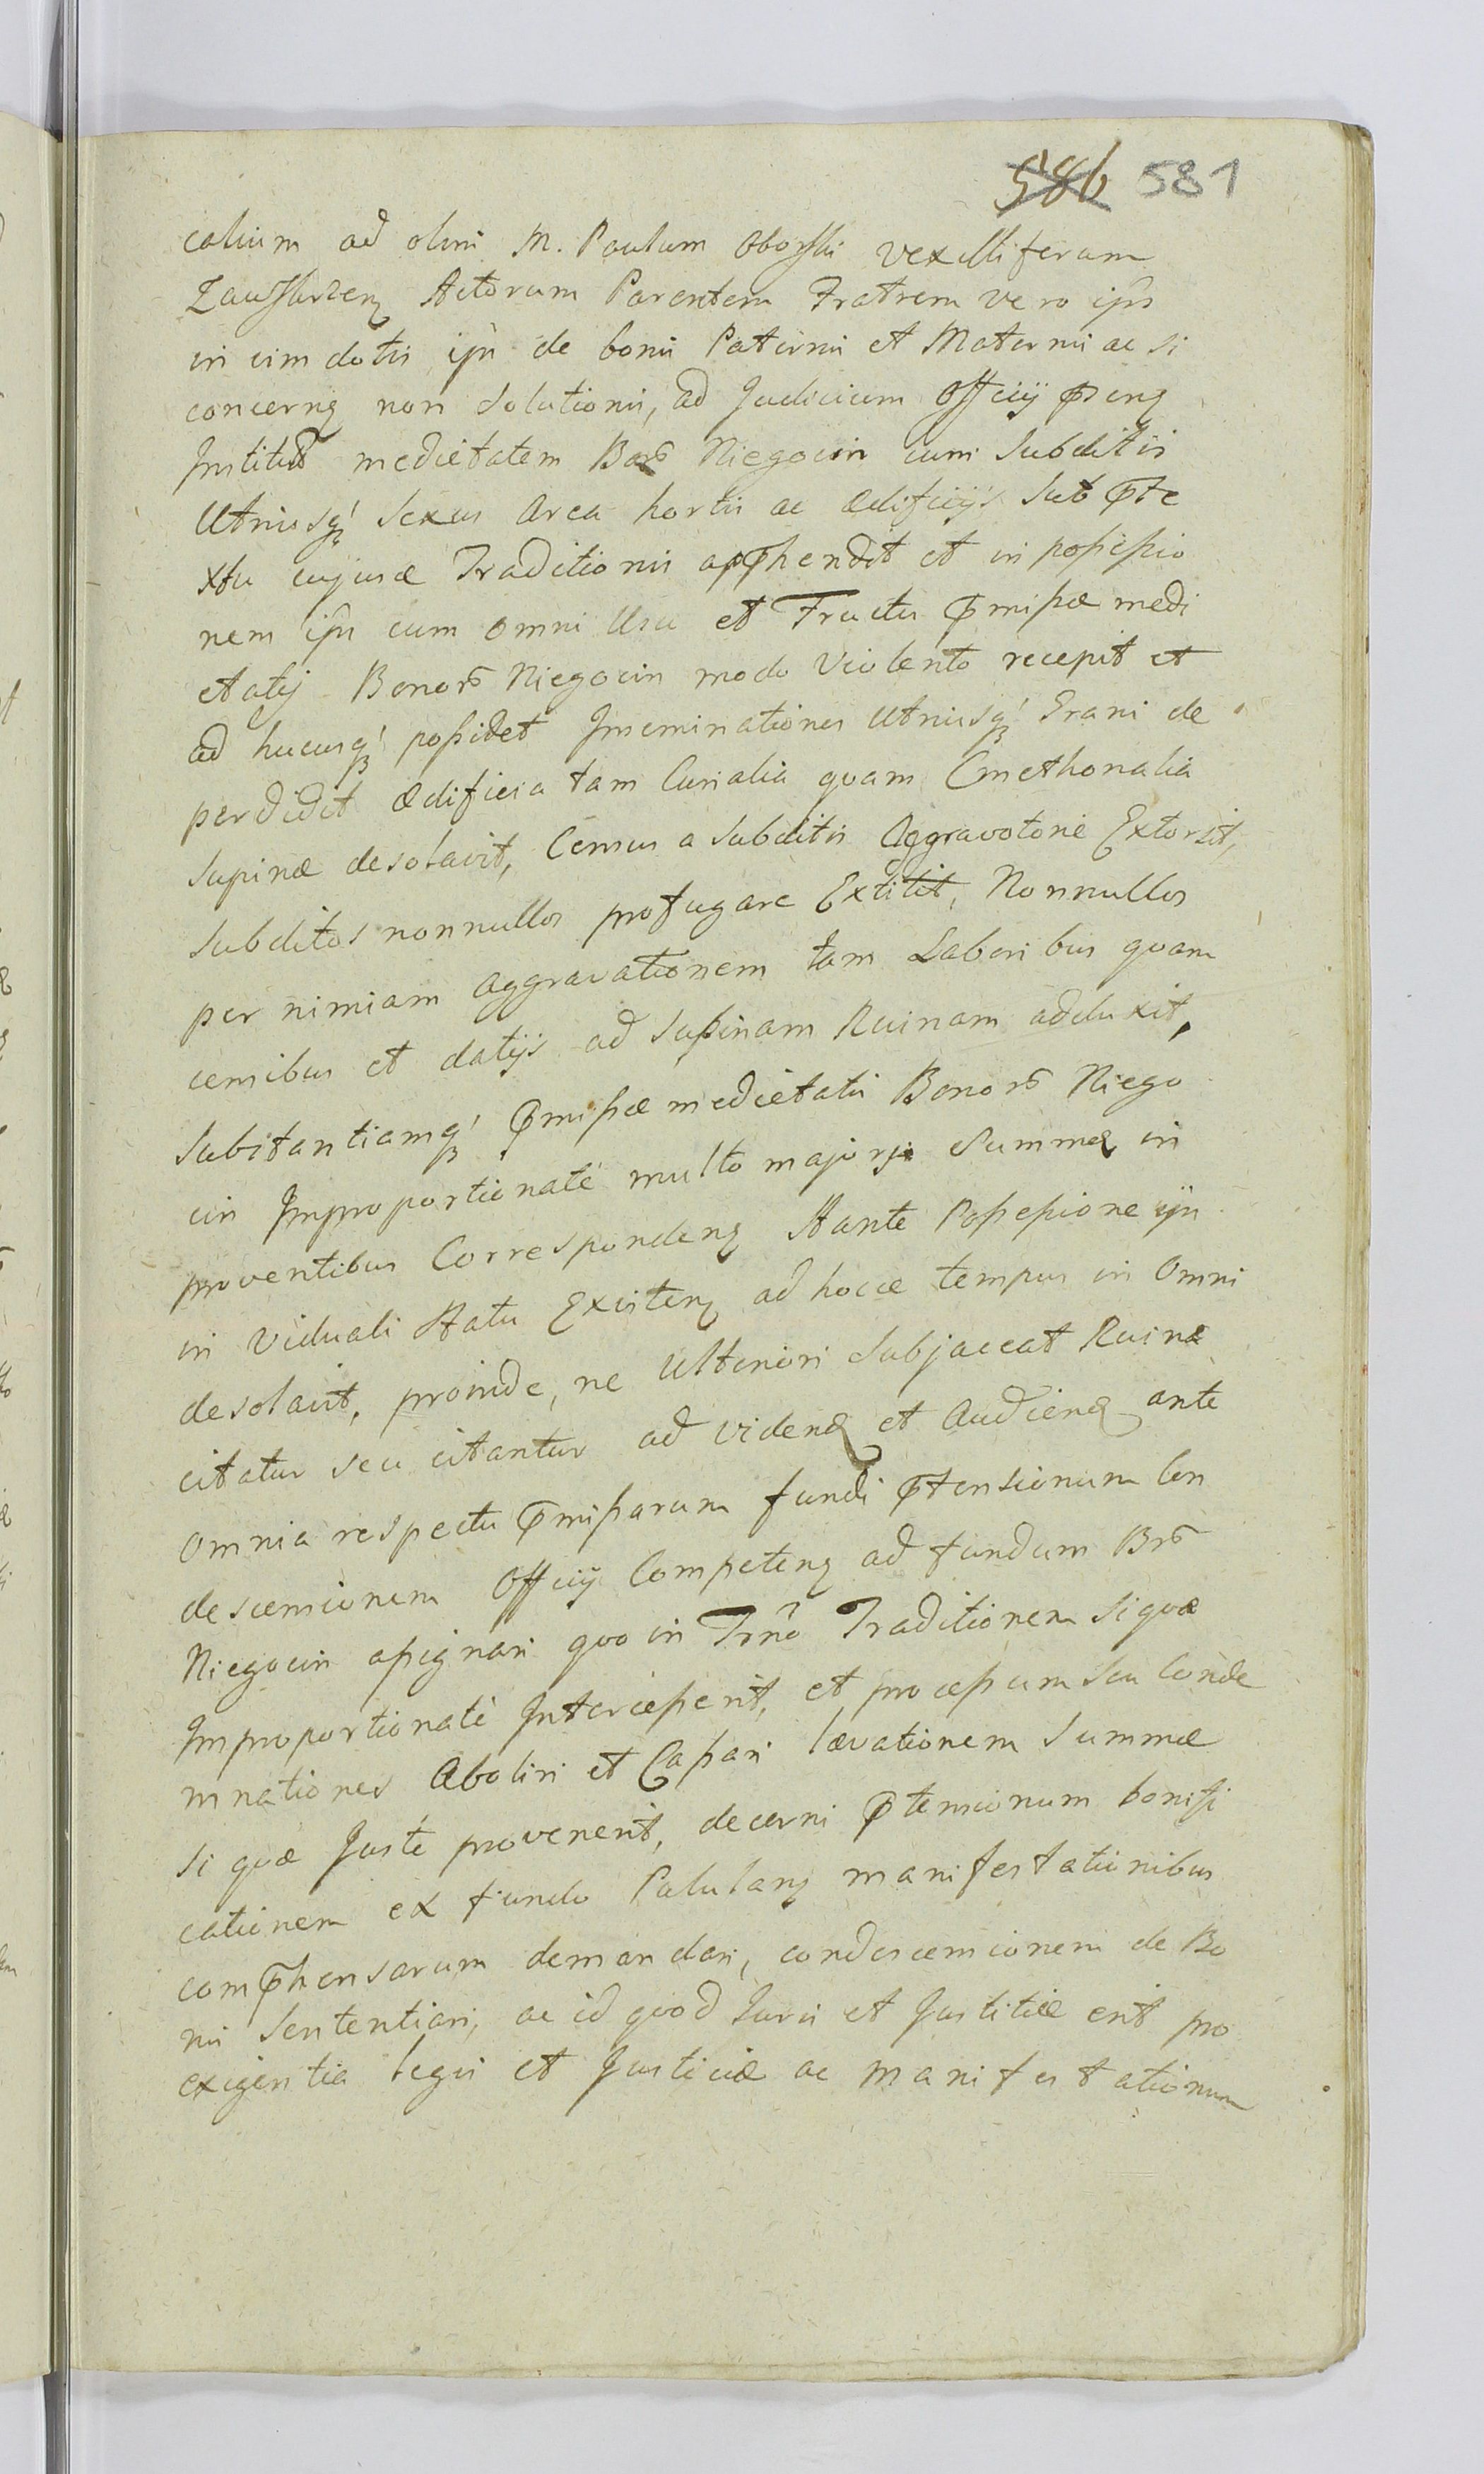 586 581
calium ad olim M. Paulum Oborski vexilliferum
Zawskrzen Actorum Parentem Fratrem vero ipīs
in vim dotis ipīs de bonis Paternis et Maternis ac si
concernꝫ non Solutionis, ad Judicium Officij pn̄senꝫ
Institut̄ medietatem Bonor̄ Niegocin cum Subditis
Utriusqꝫ Sexus Area hortis ac ædificijs Sub p̄te
xtu cujusæ Traditionis app̄hendit et in possessio
nem ipīs cum omni Usu et Fructu p̄missæ medi
etatis Bonor̄ Niegocin modo Violento recepit et
ad hucusqꝫ possidet Inseminationes Utriusqꝫ Grani de
perdidit ædificia tam Curialia quam Cmethonalia
Supinæ desolavit, Census a Subditis Aggravatorie Extorsit,
Subditos nonnullos profugare Extitit, Nonnullos
per nimiam aggravationem tam Laboribus quam
censibus et datijs ad Supinam Ruinam adduxit,
Substantiamqꝫ p̄missæ medietatis Bonor̄ Niego
cin Improportionatè multo majoris Summæ in
proventibus Correspondenꝫ Stante Possessione ipīs
in Viduali Statu Existenꝫ ad hocce tempus in Omni
desolavit, proinde, ne Ulteriori Subjaceat Ruinæ
citatur seu citantur ad vidend et Audiend ante
omnia respectu p̄missarum fundi p̄tensionum Con
descensionem Officij Competenꝫ ad fundum Bnr̄
Niegocin assignari quo in Trn̄o Traditionem siquæ
Improportionatè Intercesserit, et processum Seu Conde
mnationes Aboliri et Cassari lævationem Summæ
si quæ Justè provenerit, decerni p̄tensionum bonifi
cationem ex fundo Patulanꝫ manifestationibus
comp̄hensarum demandari, condescensionem de Bo
nis Sententiari, ac id quod Juris et Justitiæ erit pro
exigentia legis et Justiciæ ac manifestationum